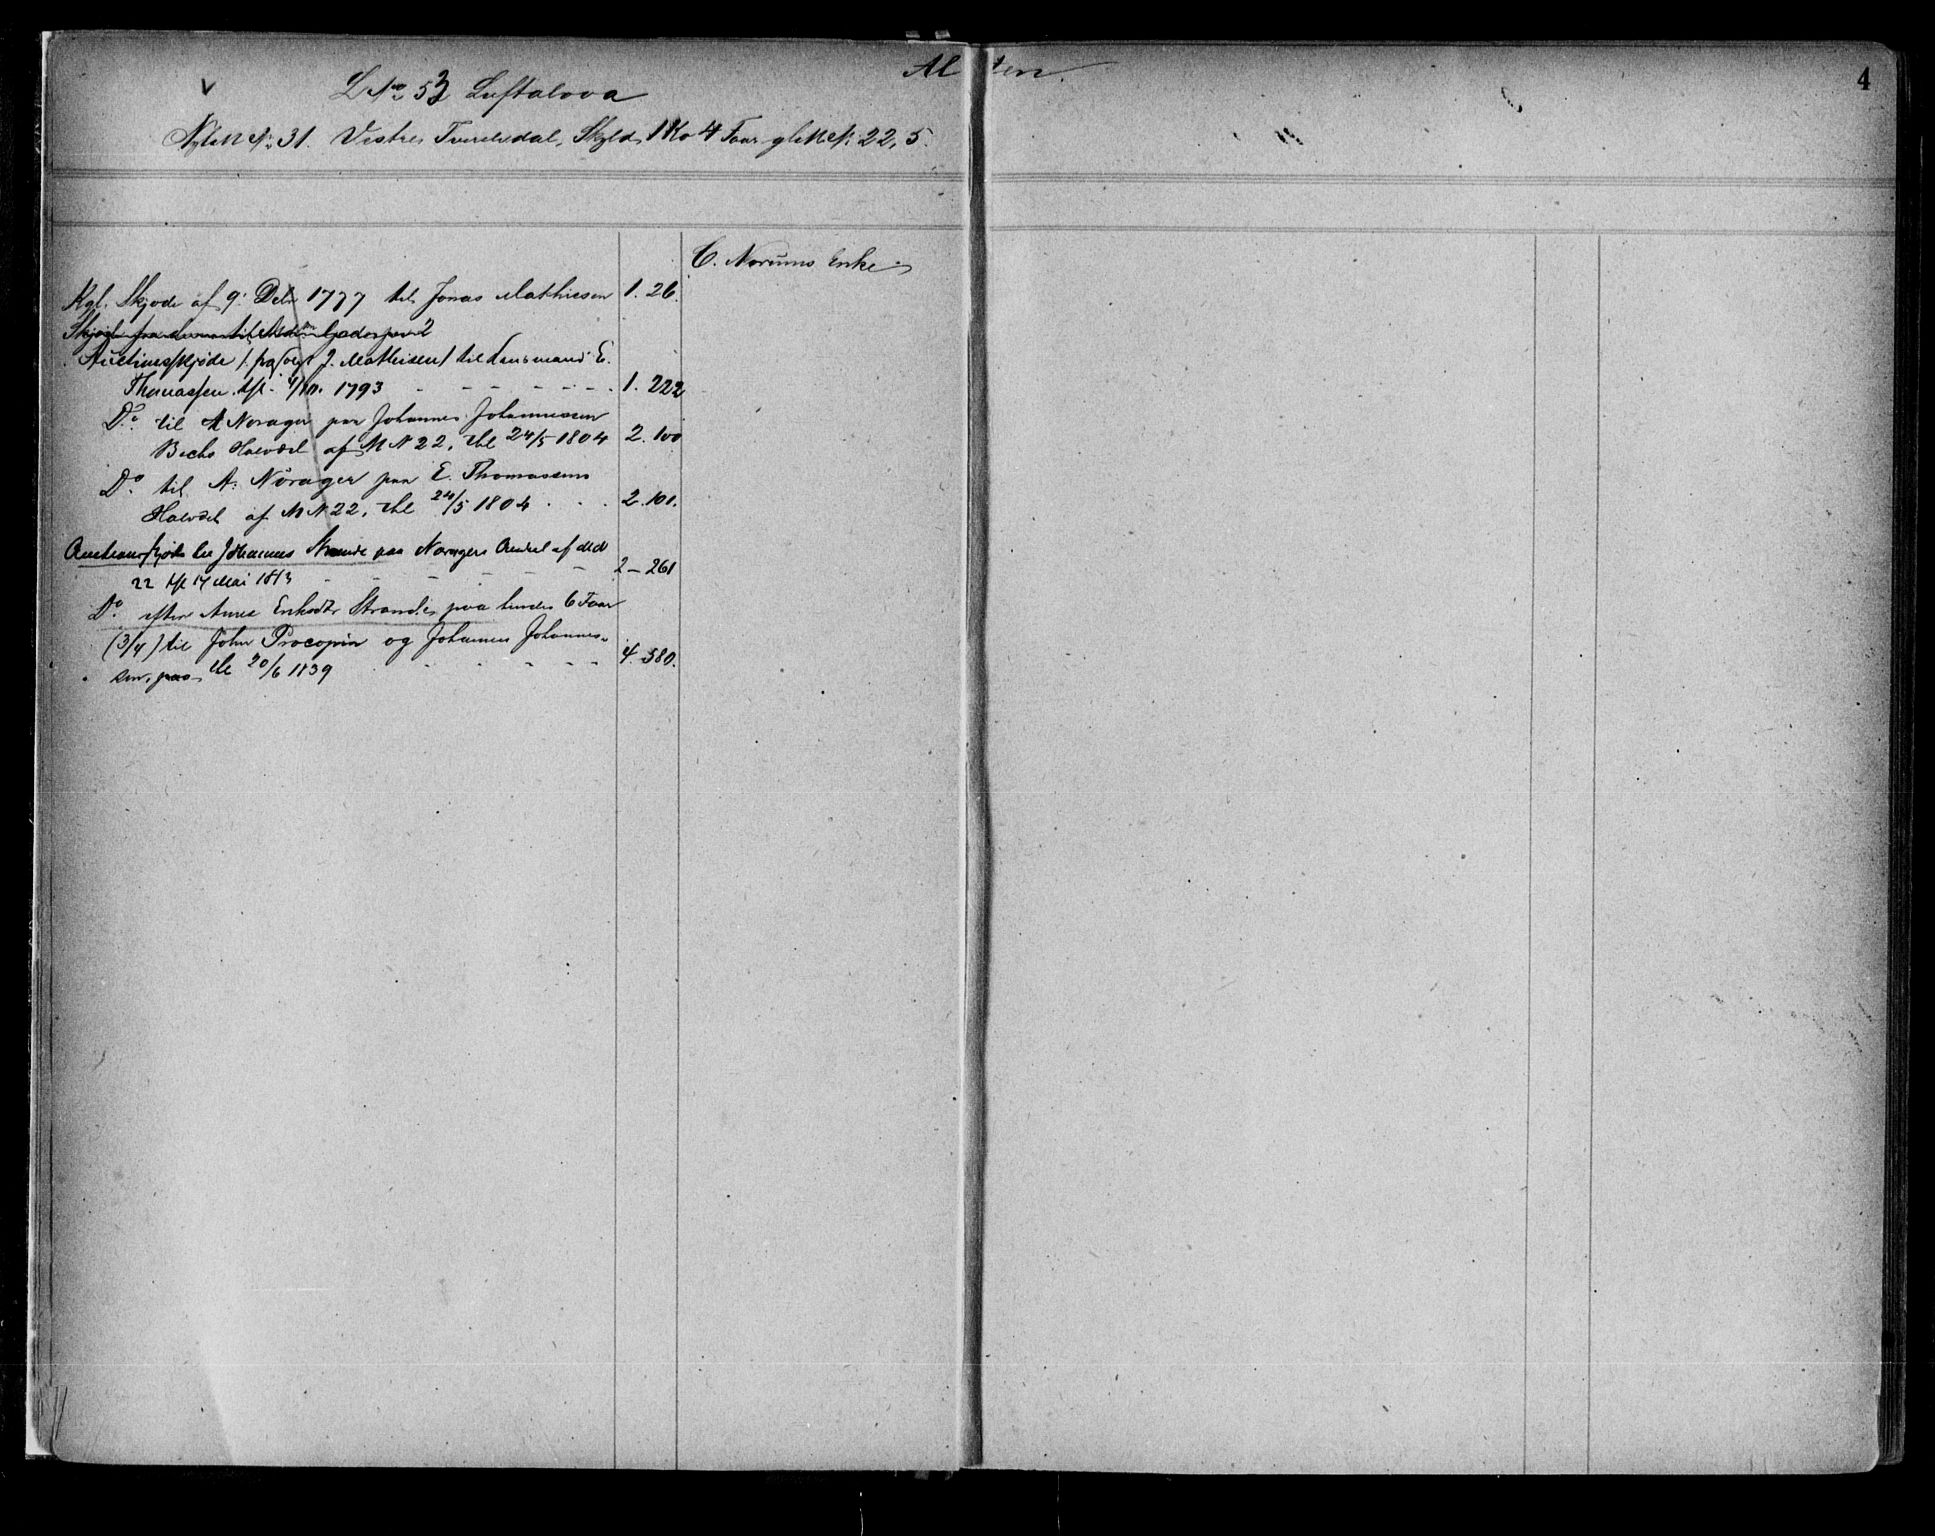 Al ten.
4
L No 53 Luftalova
Nyt M No 31. Vestre Tverelvdal, Skyld 1 Ko 4 Faar gl. M. No: 22, 5.
C. Norums Enke
Kgl. Skjøde af 9: Debr 1777 til Jonas Mathiesen 1. 26.
Skjøde fra
Auctionsskjøde /: fra Jonas J. Mathiesen / til Lensmand E.
Thomassen. thl. 4/10. 1793 - - - - - - 1. 222
Do: til A Norager paa Johannes Johannessen
Bechs Halvdel af M N 22, thl 24/5 1804 2. 100
Do til A: Nørager paa E. Thomassens
Halvdel af M N 22, thl 24/5 1804 . . . 2. 101.
Auctionsskjøde til Johannes Strande paa Noragers Andel af
22 thl 17 Mai 1813 - - - - - 2 - 261
Do. efter Anne Strandes paa hendes 6 Faar
(3/4) til John Procopin og Johannes Johannes-
sen, paa thl 20/6 1839 - - - - - 4. 580.